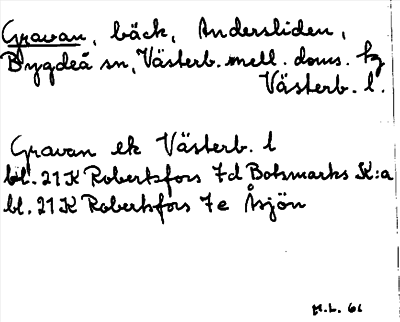 Gravan, bäck, Andersliden,
Bygdeå sn, Västerb. mell. doms. tg
Västerb. l.
Gravan ek Västerb. l
bl. 21 K Robertsfors 7d Botsmarks K:a
bl. 21 K Robertsfors 7e Åsjön
M.L. 66